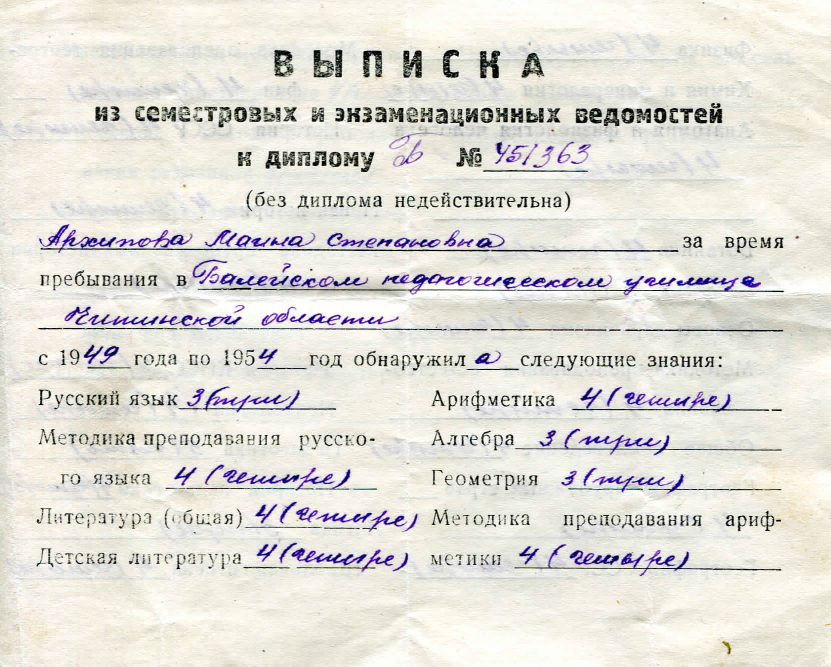 ВЫПИСКА
из семестровых и экзаменационных ведомостей
к диплому № 451363
(без диплома недействительна)
Архипова Степановна за время
пребывания в Балейском педагогическом училище
Читинской области
с 1949 года по 1954 год обнаружила следующие знания:
Русский язык 3 (три)
Методика преподавания русско-
го языка 4 (четыре)
Литература (общая) 4 (четыре)
Детская литература 4 (четыре)
Арифметика 4 (четыре)
Алгебра 3 (три)
Геометрия 3 (три)
Методика преподавания ариф-
метики 4 (четыре)